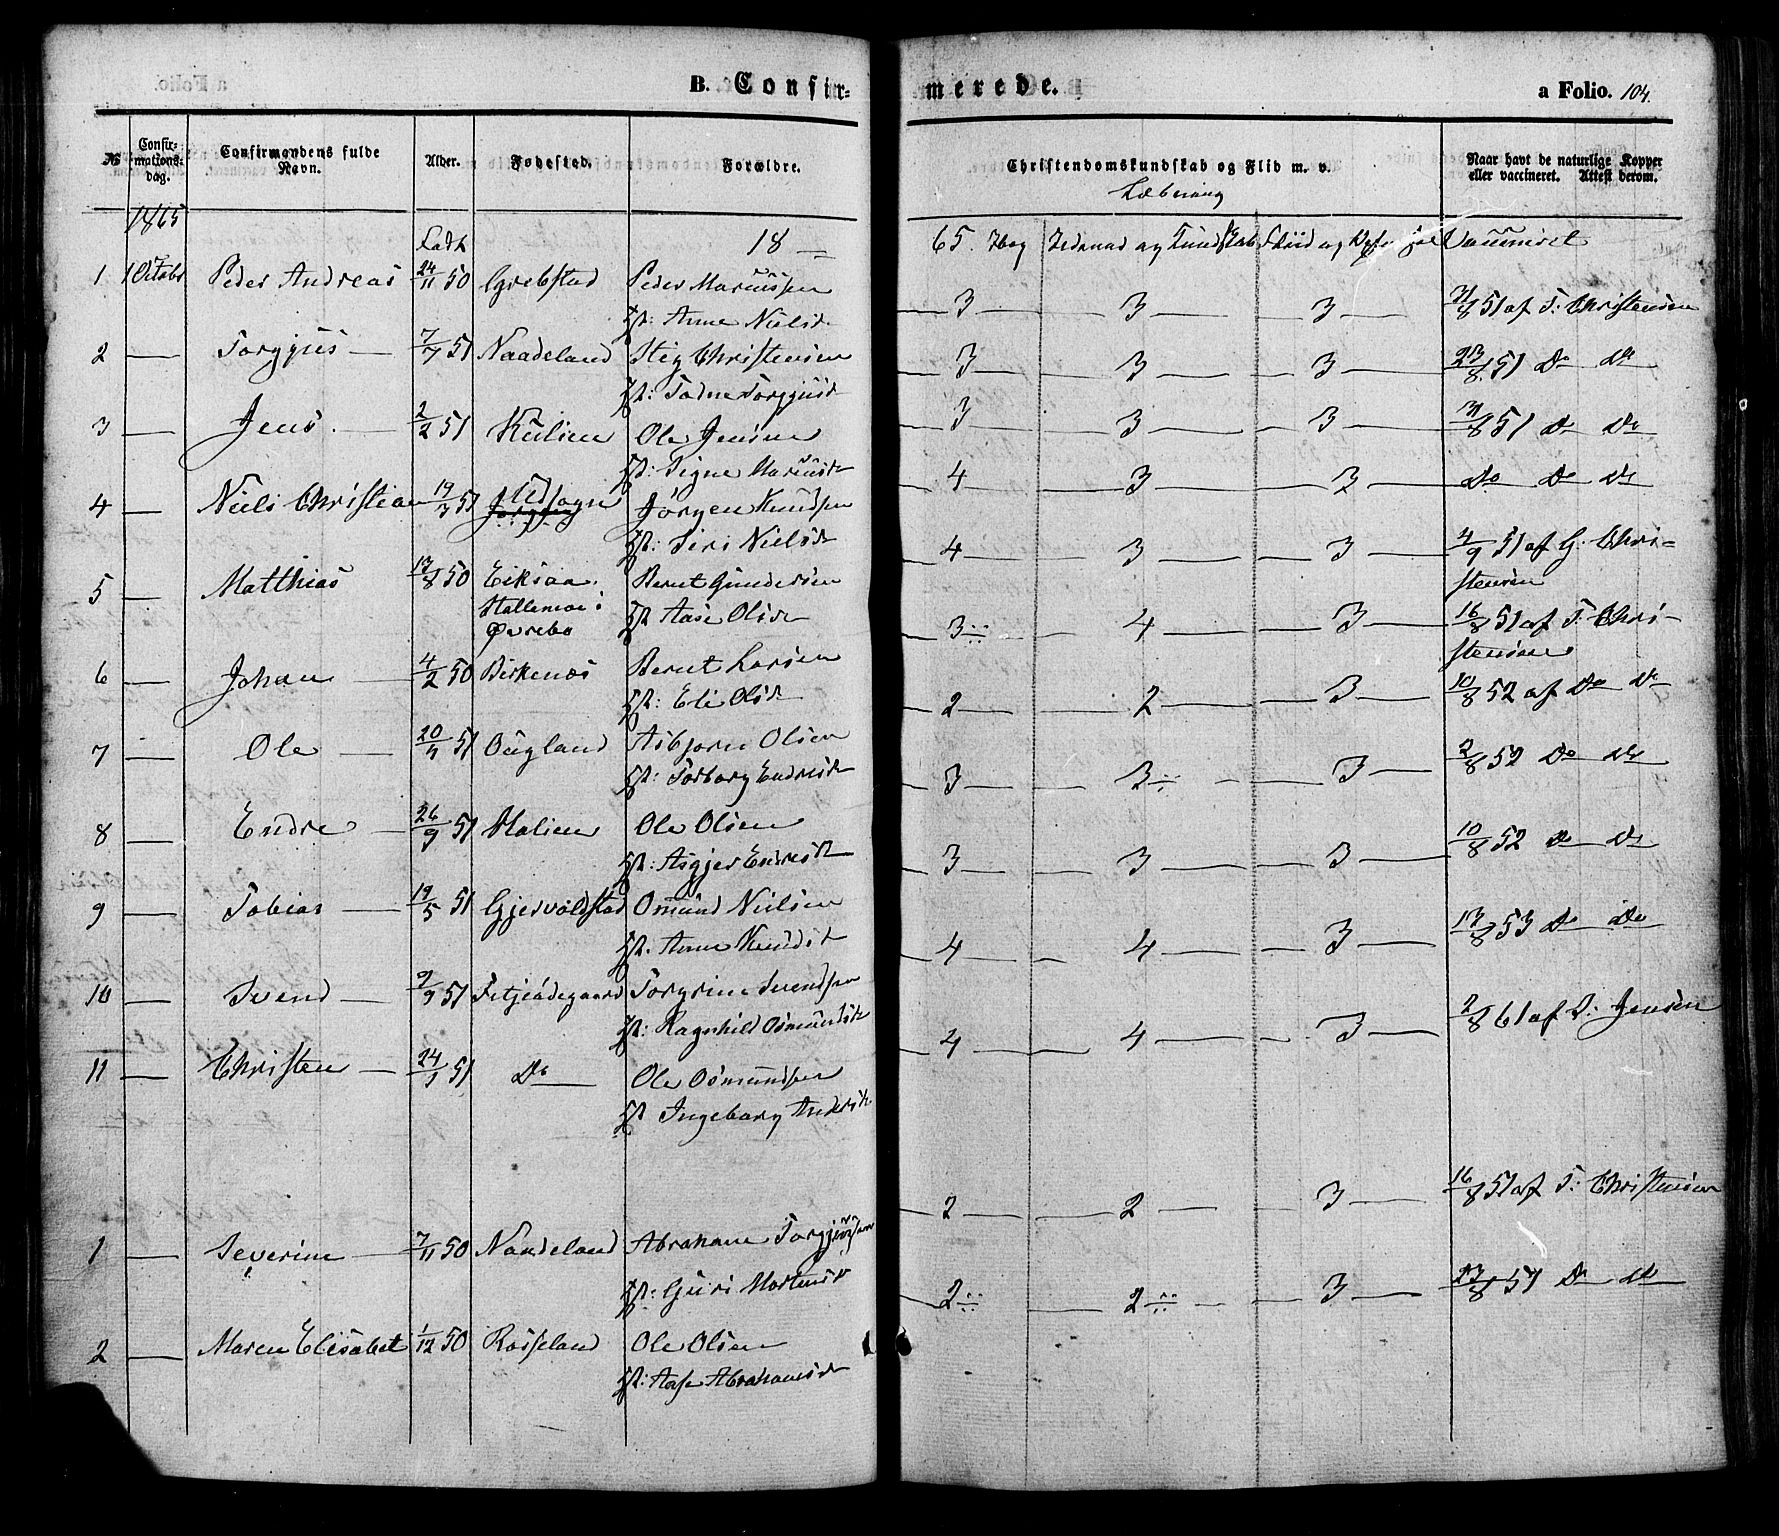 B. Confir-
merede.
a Folio. 104.
№
Confir-
mations-
dag.
Confirmandens fulde
Navn.
Alder.
Fødested.
Forældre.
Christendomskundskab og Flid m. v.
Naar havt de naturlige Kopper
eller vaccineret. Attest derom.
1865
Født
18 —
65.
Vaccineret
1 1 Octobr Peder Andreas 24/11 50 Grebstad Peder
H: Anne Nielsd.
3 3 3 31/8 51 af T. Christensen
2 — Torgjus — 7/7 51 Naadeland Stig Christensen
H: Todne Torgjusd
3 3 3 23/8 51 Do Do
3 — Jens — 2/2 51 Kulien Ole Jensen
H: Signe
3 3 3 31/8 51 Do Do
4 — Niels Christian 19/3 51 Udsogn Jørgen Knudsen
H: Siri Nielsd
4 3 3 Do Do Do
5 — Matthias 13/8 50 Eiksaa Bernt Gundersen
Stallemoe i
Øvrebø
H: Aase Olsd
4 3 3 4/9 51 af G. Chri-
stensen
6 — Johan — 4/2 50 Birkenæs Bernt Larsen
H: Eli Olsd
3 4 3 16/8 51 af T. Chri-
stensen
7 — Ole — 20/4 51 Ougland Asbjørn Olsen
H: Torborg Endresd
2 2 3 10/8 52 af Do Do
8 — Endre — 26/9 51 Stalien Ole Olsen
H: Asgjer Endresd
3 3 3 2/8 52 Do Do
9 — Tobias — 19/5 51 Gjervoldstad Osmund Nielsen
H. Anne Knudsd
3 3 3 10/8 52 Do Do
10 — Svend — 9/9 51 Fetjeødegaard Torgrim Svendsen
H: Ragnhild Osmundsd
4 4 3 13/8 53 Do Do
11 — Christen — 24/1 51 Do — Ole Osmundsen
H Ingeborg Andersd
4 4 3 2/8 61 af Jensen
1 — Severine — 7/11 50 Naadeland Abraham Torgjussen
H: Guri Mortensd
2 2 3 16/8 51 af T. Christensen
2 — Maren Elisabet 1/12 50 Rosseland Ole Olsen
H: Aase Abrahamsd
2 2 3 23/8 51 Do Do